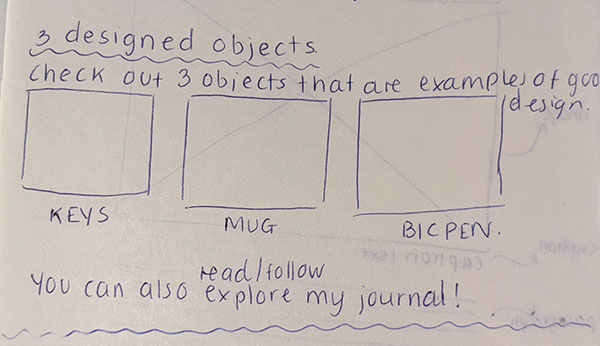 3 designed objects.
Check out 3 objects that are examples of goo
design.
KEYS
MUG
BIC PEN.
read/follow
You can also explore my journal!
caption text